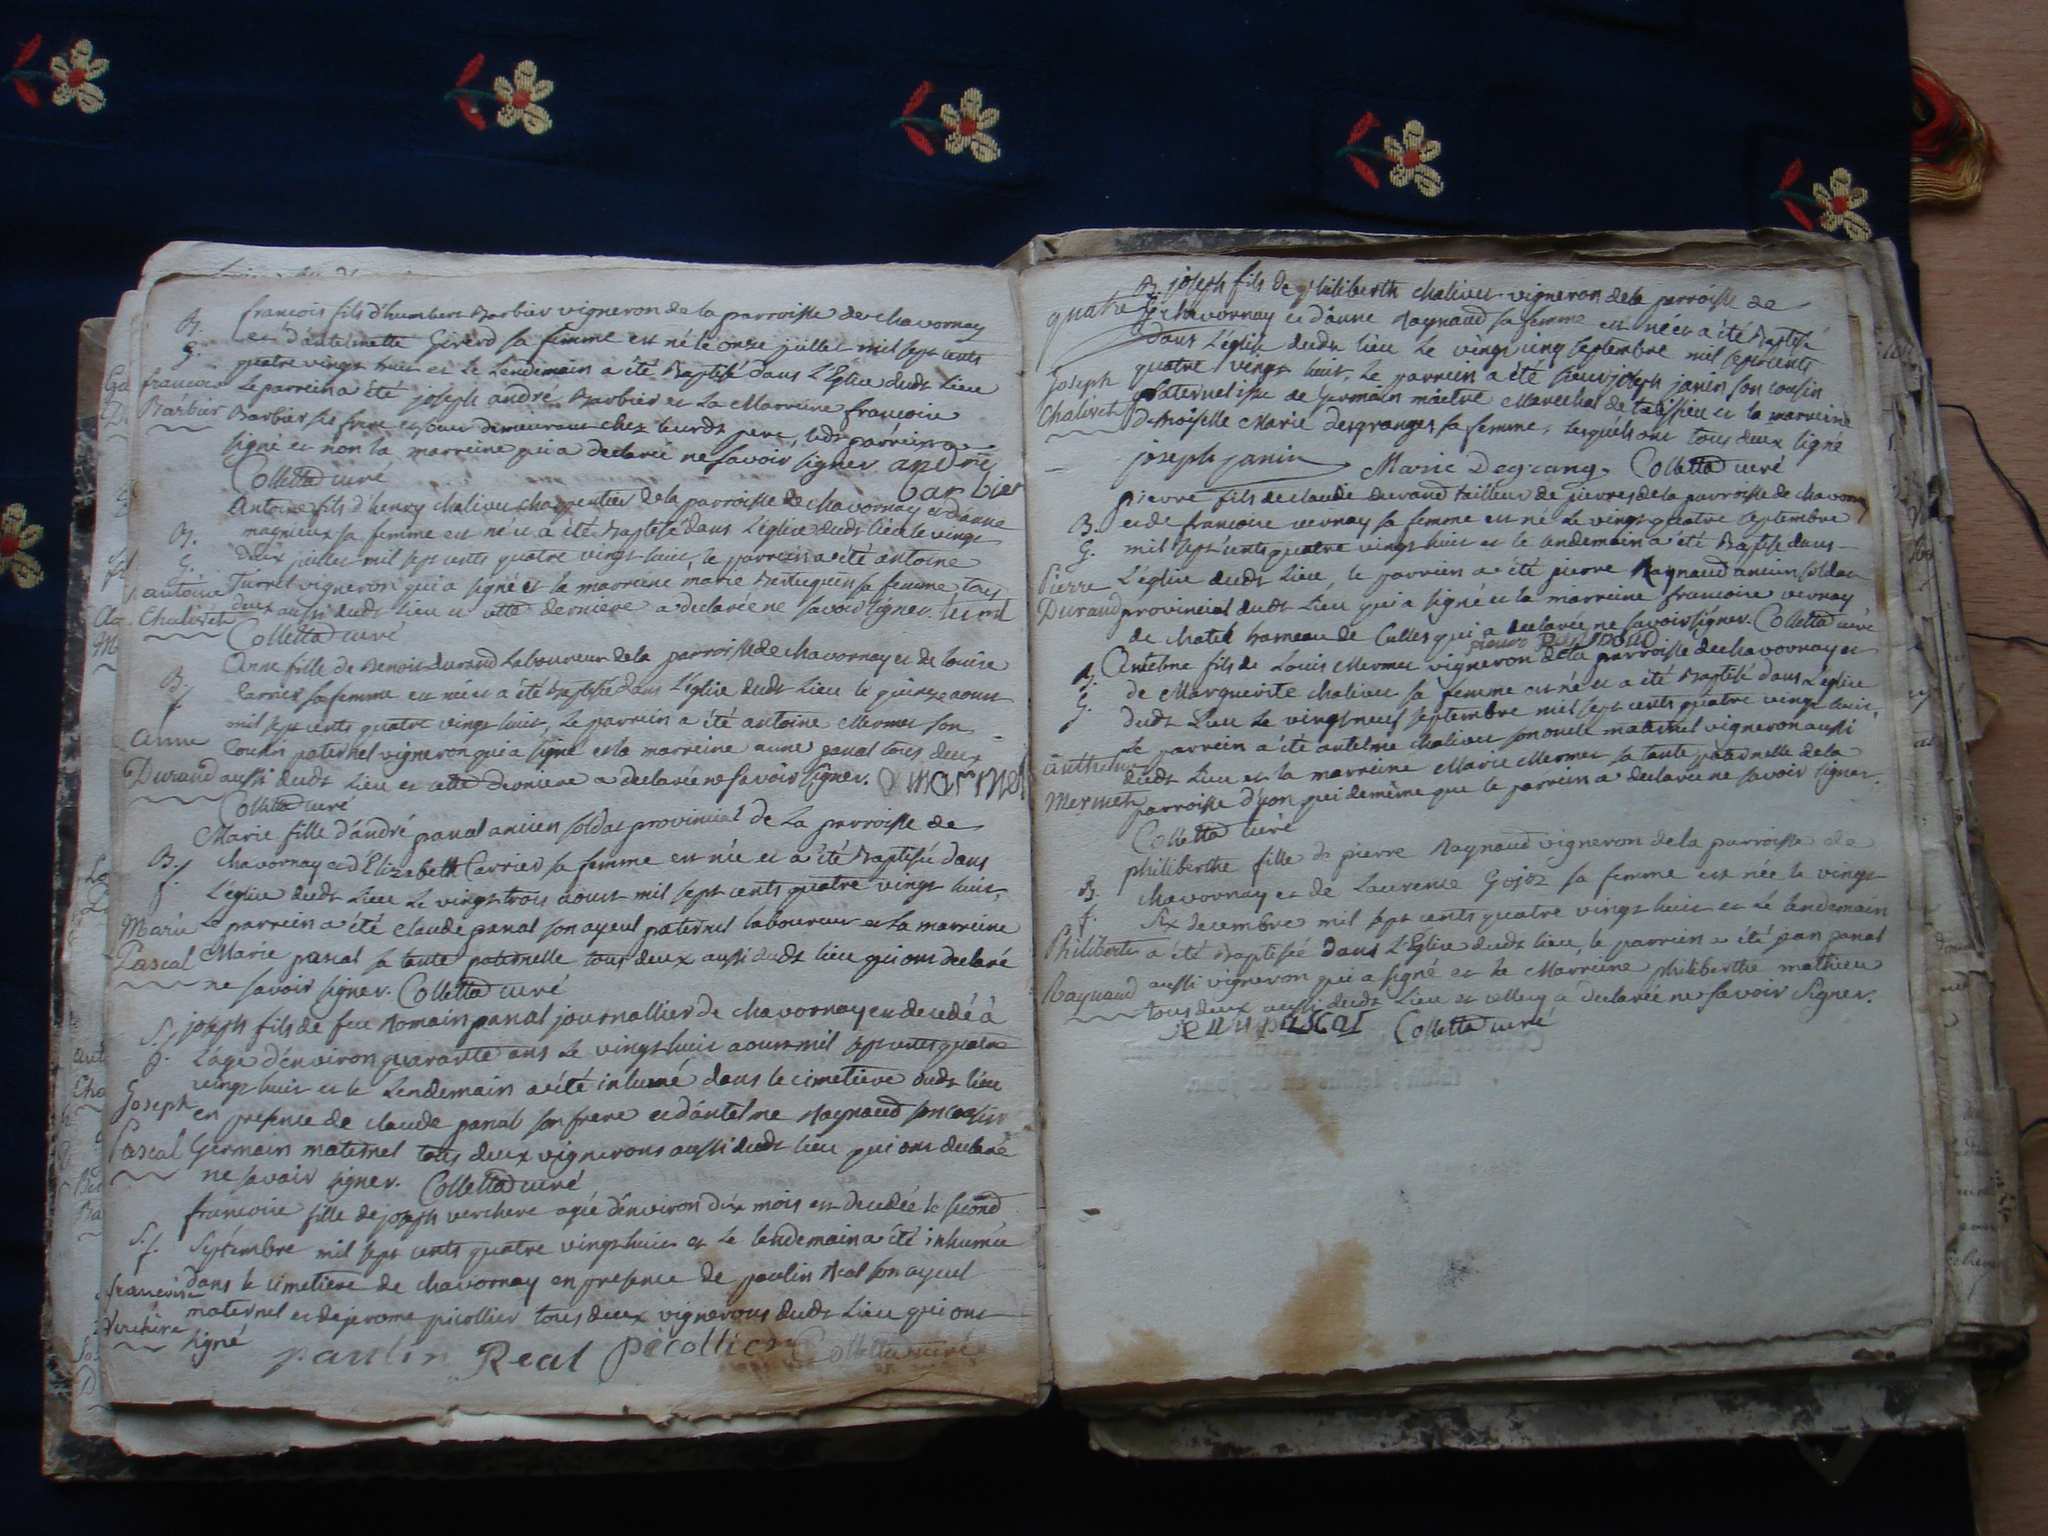 B. françois fils d'humbert Barbier vigneron de la parroisse de chavornay
G. et d'antelmette Girerd sa femme est né le onze juillet mil sept cents
quatre vingt huit et le Lendemain a été Baptisé dans L'Eglise dudt Lieu
françois Le parrein a été joseph andré Barbier et La Marreine françoise
Barbier Barbier ses frere et soeur demeurant chez leurdt pere, ledt parrein a
signé et non la marreine qui a declarée ne savoir signer. andré
Colletta curé barbier
Antoine fils d'henry chalivet charpentier de la parroisse de chavornay et d'anne
B. magnieux sa femme est né et a été Baptisé dans L'église dudt lieu le vingt
G. deux juillet mil sept cents quatre vingt huit, le parrein a été antoine
antoine Turrel vigneron qui a signé et la marreine marie sa femme tous
Chalivet deux aussi dudt Lieu et cette derniere a declarée ne savoir signer.
Colletta curé
Anne fille de Benoit durand Laboureur de la parroisse de chavornay et de louise
B. Carrier sa femme est née et a été baptisée dans L'église dudt Lieu le quinze aoust
f. mil sept cents quatre vingt huit, Le parrein a été antoine Mermet son
Anne Cousin paternel vigneron qui a signé et la marreine anne pascal tous deux
Durand aussi dudt Lieu et cette derniere a declarée ne savoir signer. a mermet
Colletta curé
Marie fille d'andré pascal ancien soldat provincial de La parroisse de
B. chavornay et d'Elizabeth Carrier sa femme est née et a été Baptisée dans
f. L'église dudt Lieu Le vingt trois aoust mil sept cents quatre vingt huit,
Marie Le parrein a été claude pascal son ayeul paternel laboureur et La marreine
Pascal Marie pascal sa tante paternelle tous deux aussi dudt lieu qui ont declaré
ne savoir signer. Colletta curé
S. joseph fils de feu Romain pascal journallier de chavornay est decedé à
g. L'age d'environ quarante ans Le vingt huit aoust mil sept cents quatre
vingt huit et le Lendemain a été inhumé dans le cimetiere dudt lieu
Joseph en presence de claude pascal son frere et d'antelme Raynaud son cousin
Pascal Germain maternel tous deux vignerons aussi dudt lieu qui ont declaré
ne savoir signer. Colletta curé
françoise fille de joseph verchere agée d'environ dix mois est decedée le second
S. f. Septembre mil sept cents quatre vingt huit et le lendemain a été inhumée
françoise dans le cimetiere de chavornay en presence de paulin Real son ayeul
Verchere maternel et de jerome picollier tous deux vignerons dudt Lieu qui ont
signé
paulin Real picollier Colletta curé
B. joseph fils de philiberth chalivet vigneron de la parroisse de
quatre chavornay et d'anne Raynaud sa femme est né et a été Baptisé
dans L'église dudt lieu Le vingt cinq septembre mil sept cents
joseph quatre vingt huit, Le parrein a été sieur joseph janin son cousin
Chalivet paternel issu de Germain maitre Marechal de talissieu et la marreine
Demoiselle Marie desgranges sa femme, Lesquels ont tous deux signé
joseph janin Marie Degrange Colletta curé
pierre fils de claude durand tailleur de pierres de la parroisse de chavornay
B. et de françoise vernay sa femme est né Le vingt quatre septembre
G. mil sept cents quatre vingt huit et le lendemain a été Baptisé dans
Pierre L'église dudt Lieu, le parrein a été pierre Raynaud ancien soldat
Durand provincial dudt Lieu qui a signé et la marreine françoise vernay
de hameau de Culles qui a declarée ne savoir signer. Colletta curé
pierre
B. Antelme fils de Louis Mermet vigneron de la parroisse de chavornay et
G. de Marguerite chalivet sa femme est né et a été Baptisé dans L'église
dudt Lieu Le vingt neuf septembre mil sept cents quatre vingt huit,
Le parrein a été antelme chalivet son oncle maternel vigneron aussi
Anthelme dudt Lieu et la marreine Marie Mermet sa tante paternelle de la
Mermet parroisse d'yon qui de même que le parrein a declarée ne savoir signer.
Colletta Curé
philiberthe fille de pierre Raynaud vigneron de la parroisse de
B. chavornay et de Laurence Gojoz sa femme est née le vingt
f. six decembre mil sept cents quatre vingt huit et Le lendemain
Philiberte a été Baptisée dans L'Eglise dudt lieu, le parrein a été jean pascal
Raynaud aussi vigneron qui a signé et la Marreine philiberthe mathieu
tous deux aussi dudt Lieu et celle cy a declarée ne savoir signer.
jean pascal Colletta curé